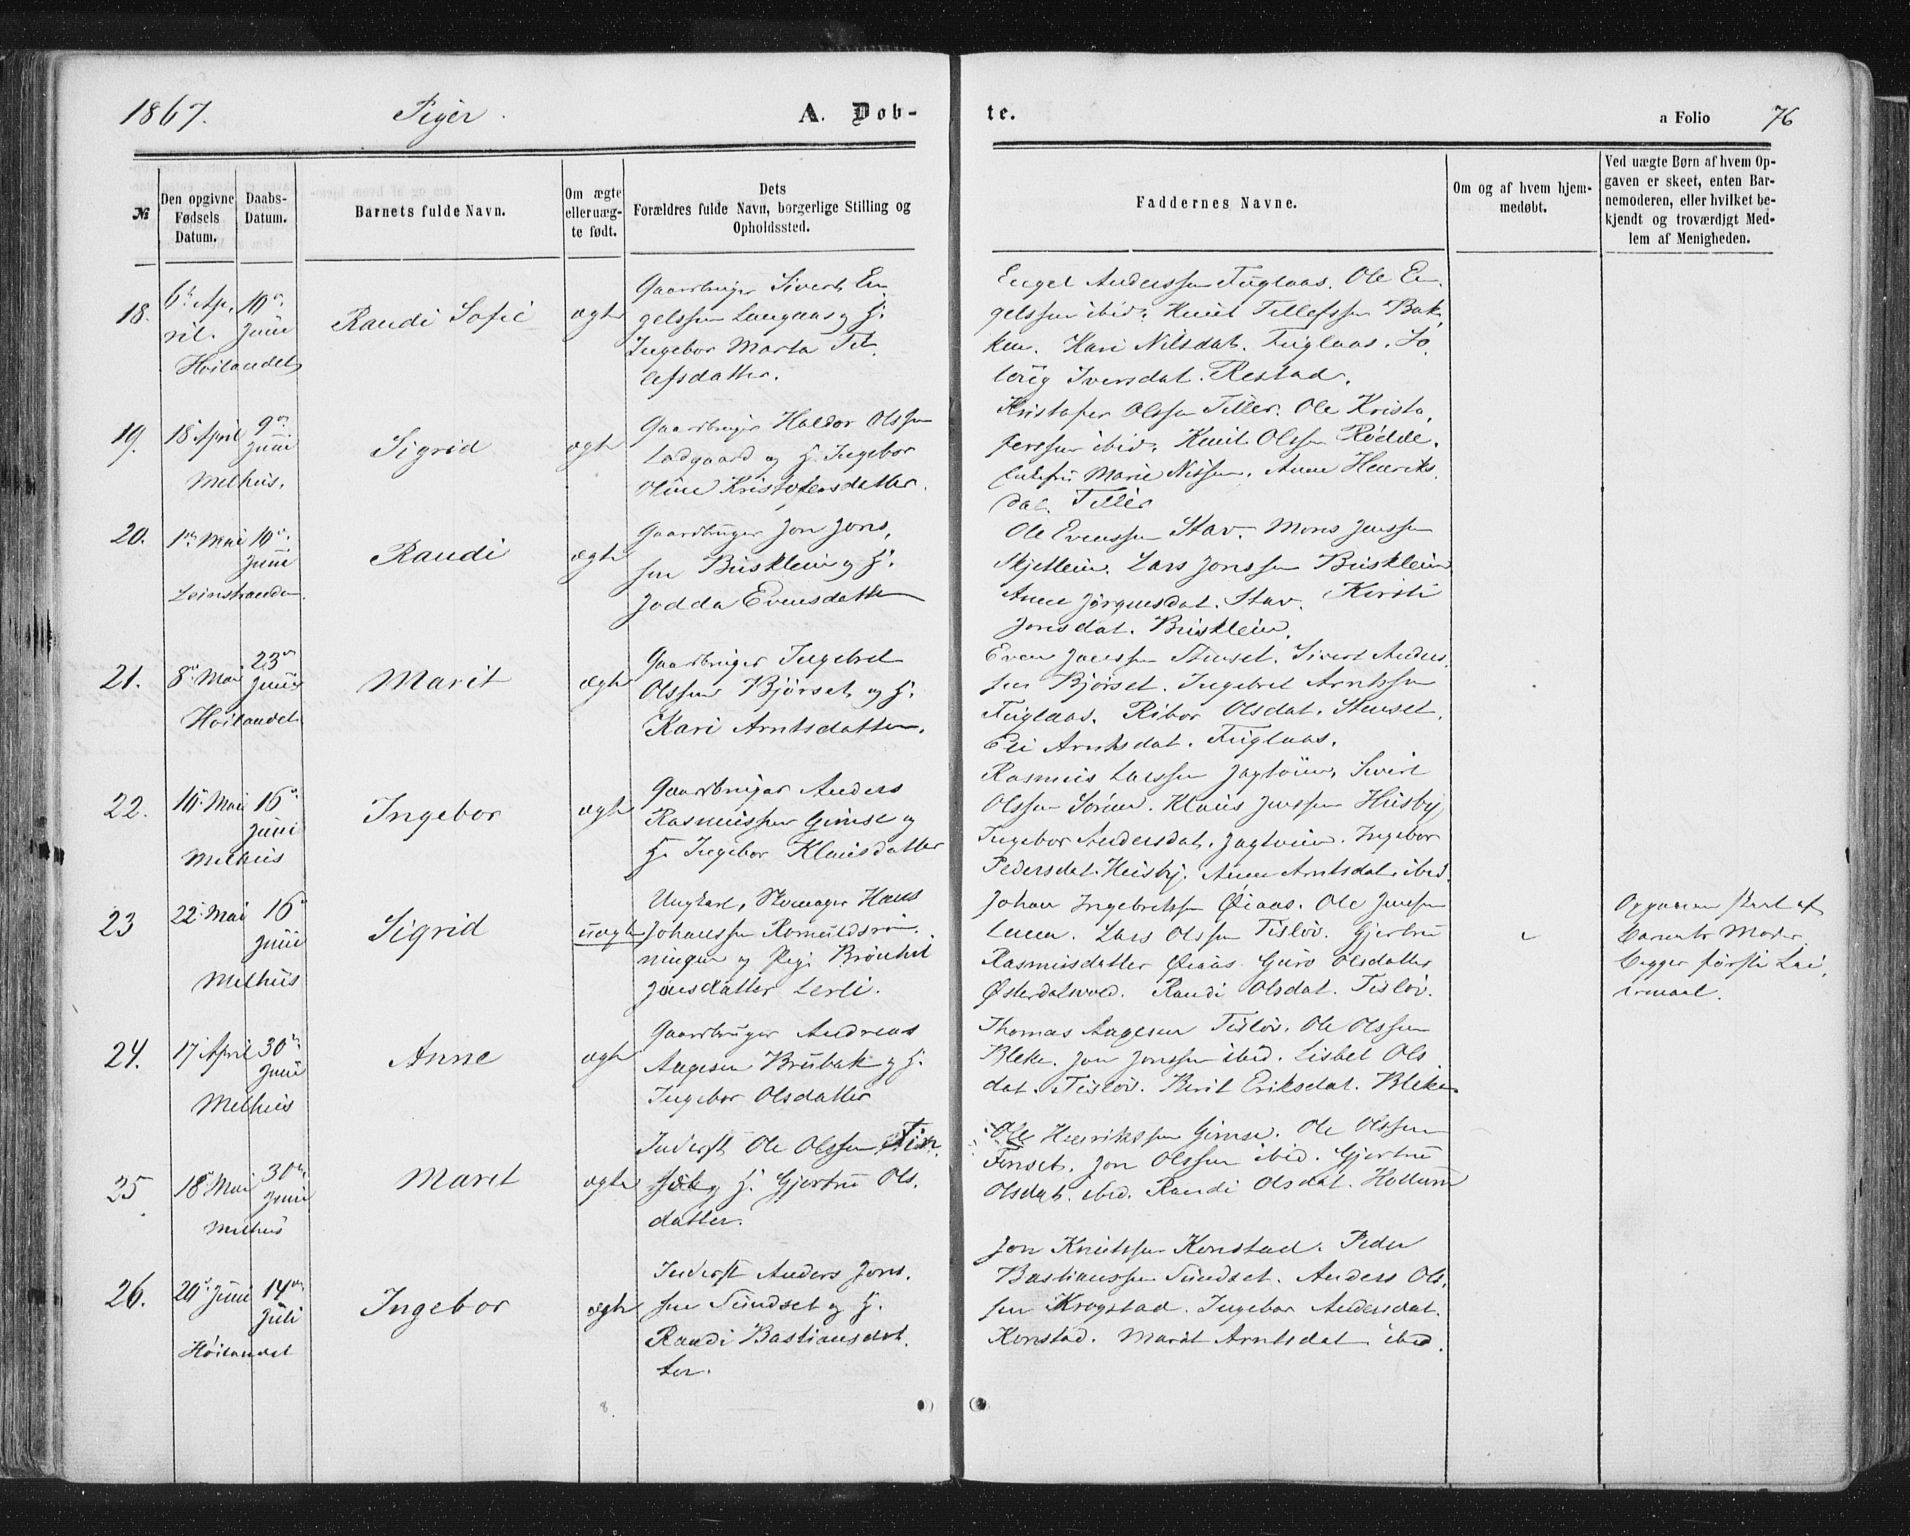 1867. Piger. A. Døb-
te. a Folio 76
№
Den opgivne
Fødsels
Datum.
Daabs-
Datum.
Barnets fulde Navn.
Om ægte
eller uæg-
te født.
Dets
Forældres fulde Navn, borgerlige Stilling og
Opholdssted.
Faddernes Navne.
Om og af hvem hjem-
medøbt.
Ved uægte Børn af hvem Op-
gaven er skeet, enten Bar-
nemoderen, eller hvilket be-
kjendt og troværdigt Med-
lem af Menigheden.
18. 6te Ap-
ril.
Høilandet
Juni
Randi Sofie
ægte
Gaardbruger Sivert En
gelssen Langaas og H.
Ingebor Marta Tel
lefsdatter.
Engel Anderssen Fuglaas. Ole En
gelssen ibid. Knut Tellefssen Bak
ken. Kari Nilsdat. Fuglaas. So
lvig Iversdat. Restad.
19. 18 April
Melhus.
9de
Juni
Sigrid
ægte
Gaardbruger Haldor Olssen
Ladgaard og H. Ingebor
Oline Kristofersdatter.
Kristofer Olssen Tiller. Ole Kristo
ferssen ibid. Knut Olssen Rødde.
Marie Nissen. Anne Henriks
dat. Tiller
20. 1ste Mai
Leinstranden.
Juni
Randi
ægte
Gaardbruger Jon Jons
sen Buskleim og H.
Jodda Evensdatter
Ole Evenssen Stav. Mons Jenssen
Skjetlein. Lars Jonssen Buskleim
Anne Jørgensdat. Stav. Kirsti
Jonsdat. Buskleim.
21. 8de Mai
Høilandet
23de
Juni
Marit
ægte
Gaardbruger Ingebret
Olssen Bjørset og H.
Kari Arntsdatter.
Even Stenset. Sivert Anders
sen Bjørset. Ingebret Arntssen
Fuglaas. Ribor Olsdat. Stenset.
Eli Arntsdat. Fuglaas.
22. Mai
Melhus
16de
Juni
Ingebor
ægte
Gaardbruger Anders
Rasmussen Gimse og
H. Ingebor Klausdatter
Rasmus Larssen Sivert
Olssen Klaus Jenssen Husby
Ingebor Andersdat. Ingebor
Pedersdat. Husby. Anne Arntsdat. ibid.
23 22de Mai
Melhus
16de
Juni
Sigrid
uægte
Ungkarl, Skomager Hans
Johanssen
ningen og Jensdatter Lerli.
Johan Ingebretssen Øiaas. Ole Jenssen
Lars Olssen Tisløv. Gjertru
Rasmusdatter Øiaas. Guro Olsdatter
Østerdalsvold. Randi Olsdat. Tisløv.
Opgaven skeet af
Barnets Moder.
Begges første Lei
ermaal.
24. 17 April
Melhus
30te
Juni
Anne
ægte
Gaardbruger Andreas
Aagesen Brubak og H.
Ingebor Olsdatter
Thomas Aagesen Tisløv. Ole Olssen
Bleke. Jon Jonssen ibid. Lisbet Ols
dat. Tisløv. Berit Eriksdat. Bleke
25 18de Mai
Melhus
30te
Juni
Maret
ægte
Inderst Ole Olssen
og H. Gjertru Ols
datter.
Ole Henrikssen Gimse. Ole Olssen
Jon Olssen ibid. Gjertru
Olsdat. ibid. Randi Olsdat. Hollum
26. 20de Juni
Høilandet
14de
Juli
Ingebor
ægte
Inderst Anders Jons
sen Sundset og H.
Randi Bastiansdat
ter.
Jon Knutssen Konstad. Peder
Bastianssen Sundset. Anders Ols
sen Krogstad. Ingebor Andersdat.
Konstad. Marit Arntsdat ibid.